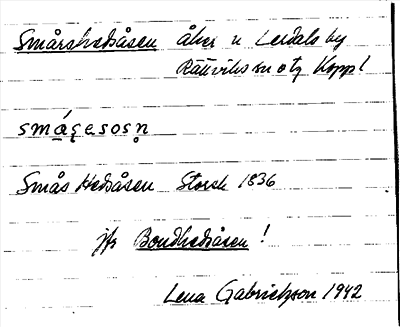 Smårshedsåsen åker n Lerdals by
Rättviks sn o tg Koppl
Smås Hedsåsen Storsk 1836
jfr Bondhedsåsen!
Lena Gabrielsson 1942